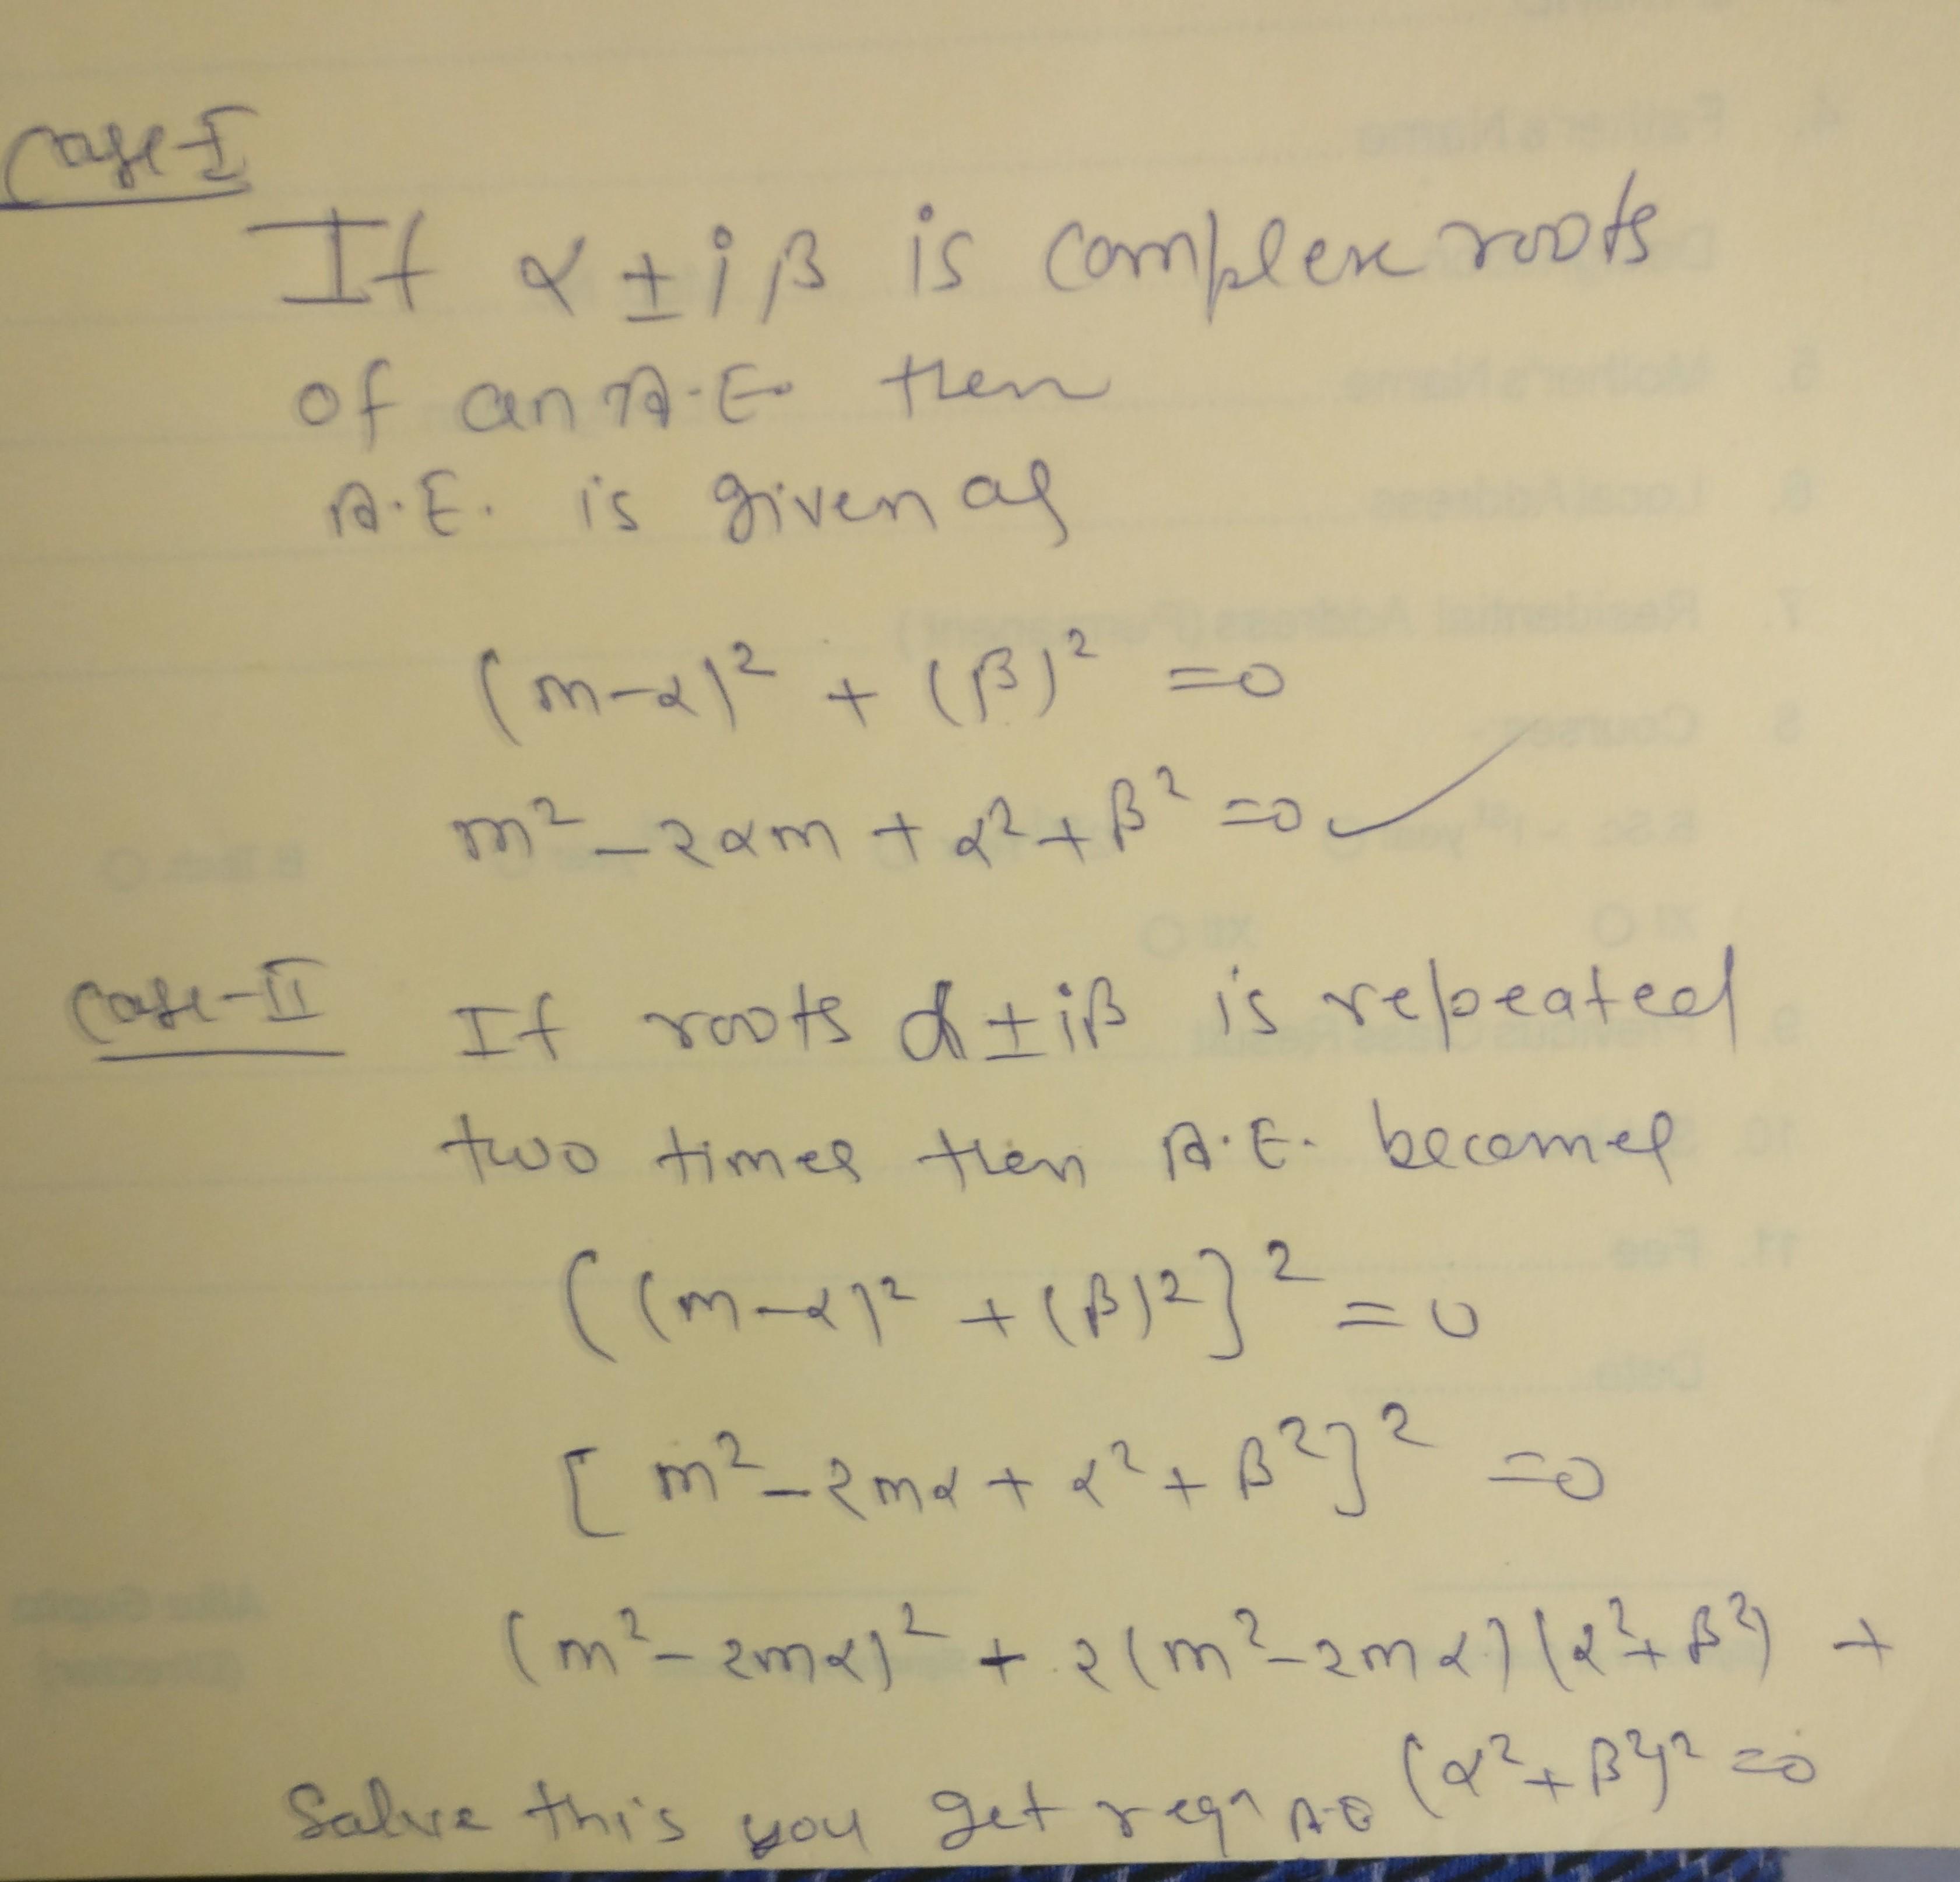 Case-I
If α ± iβ is complex roots
of an A.E. then
A.E. is given as
(m-α)² + (β)² =0
m² - 2αm + α² + β² =0
Case-II If roots α ± iβ is repeated
two times then A.E. becomes
((m-α)² + (β)²}² = 0
[m² - 2mα + α² + β²]² =0
(m² - 2mα)² + 2(m² - 2mα)(α² + β²) +
(α² + β²)² =0
Solve this you get reqn A.E